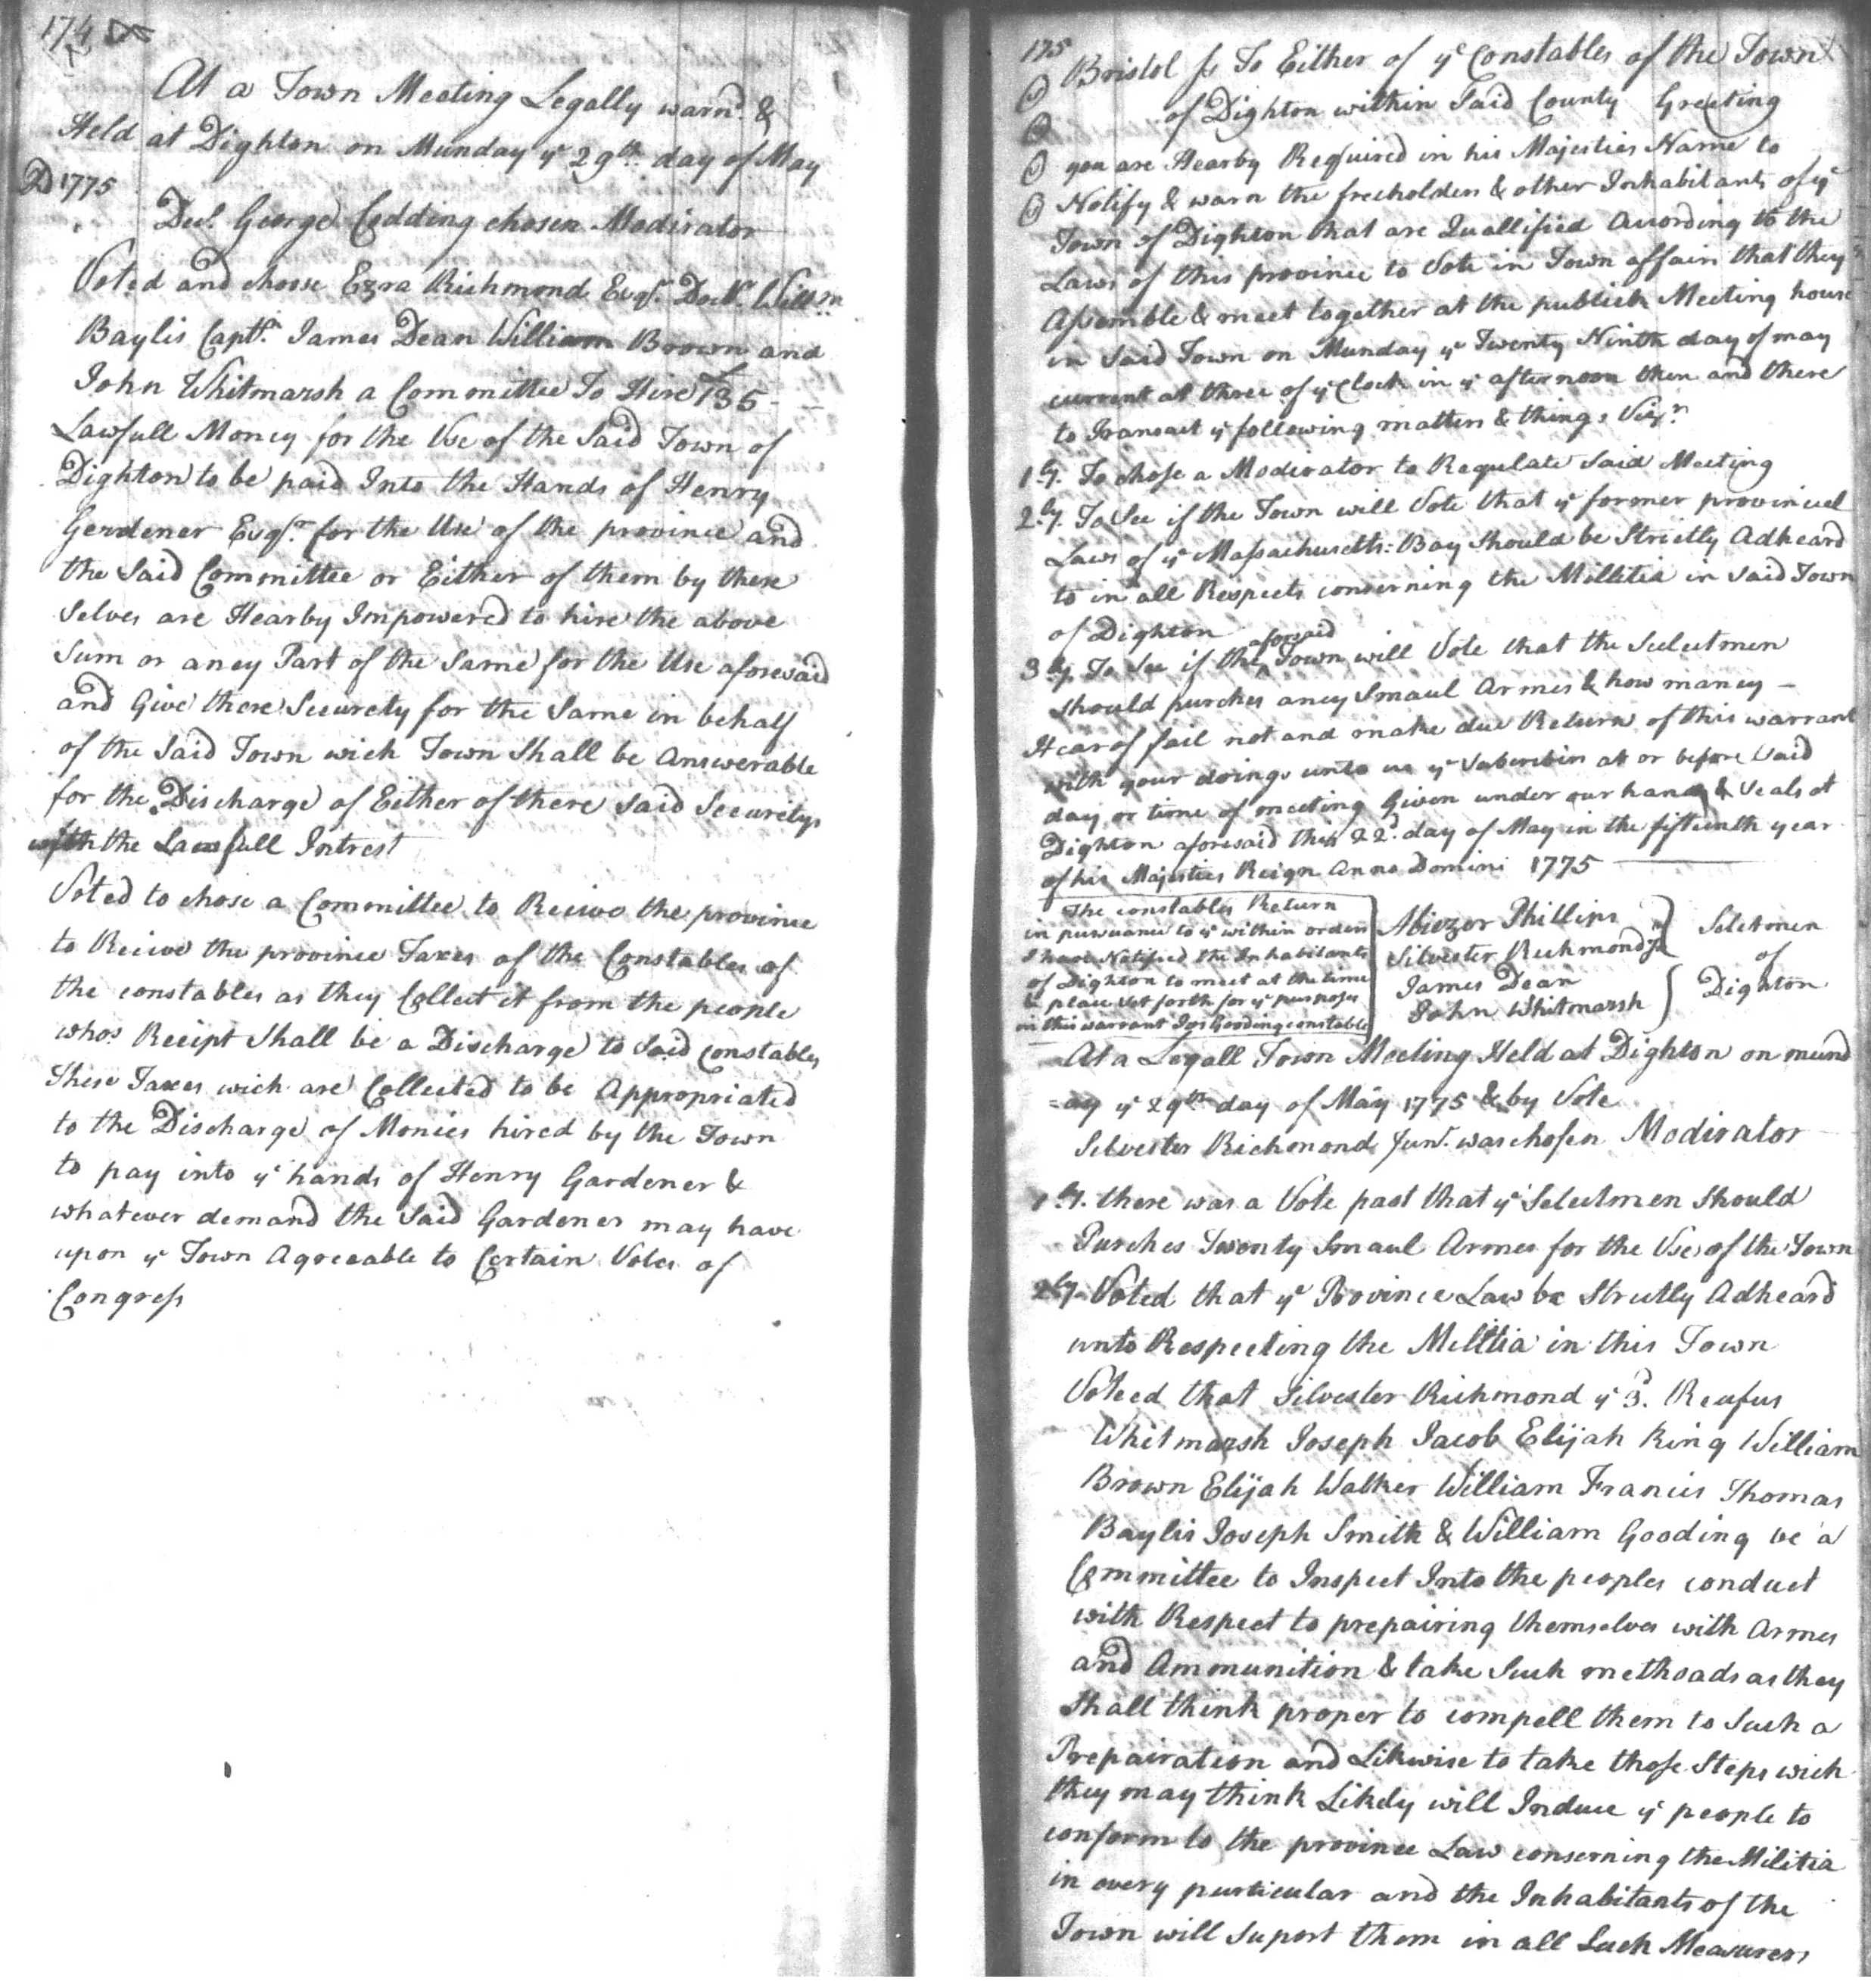 174
At a Town Meeting Legally warnd. &
Held at Dighton on Munday ye 29th. day of May
AD 1775
Decl. George Codding chosen Modirator
Voted and choose Ezra Richmond Esqr. Doctr. Willm
Baylis Captn. James Dean William Brown and
John Whitmarsh a Committee To Hire £135 -
Lawfull Money for the Use of the Said Town of
Dighton to be paid Into the Hands of Henry
Gerdener Esqr. for the Use of the province and
the Said Committee or Either of them by there
Selves are Hearby Impowered to hire the above
Sum or aney Part of the Same for the Use aforesaid
and Give there Securety for the Same in behalf
of the Said Town wich Town Shall be Answerable
for the Discharge of Either of there Said Securetys
with the Lawfull Intrest
Voted to chose a Committee to Recive the province
to Recive the province Taxes of the Constables of
the constables as they Collect it from the people
whos Recipt Shall be a Discharge to Said constables
These Taxes wich are Collected to be Appropriated
to the Discharge of Monies hired by the Town
to pay into ye hands of Henry Gardener &
whatever demand the Said Gardener may have
upon ye Town Agreeable to Certain Votes of
Congress
175
Bristol ss To Either of ye Constables of the Town
of Dighton within Said County Greeting
you are Hearby Required in his Majesties Name to
Notify & warn the freeholders & other Inhabitants of ye
Town of Dighton that are Quallified Acording to the
Laws of this province to Vote in Town affairs that they
Assemble & meet together at the publick Meeting house
in Said Town on Munday ye Twenty Ninth day of may
current at three of ye Clock in ye afternoon then and there
to Transact ye following matters & things Vizn.
1ly. To chose a Moderator to Regulate Said Meeting
2ly. To See if the Town will Vote that ye former provincial
Laws of ye Massachusetts=Bay Should be Strictly Adheard
to in all Respects conserning the Millitia in Said Town
of Dighton
3ly. To See if the aforsaid Town will Vote that the Selectmen
should purches aney Smaul Armes & how maney -
Hearof fail not and make due Return of this warrant
with your doings unto us ye Subscribirs at or before Said
day or time of meeting Given under our hands & Seals at
Dighton aforesaid this 22d. day of May in the fifteenth year
of his Majesties Reign Anno Domini 1775
The constables Return
in pursuance to ye within orders
I have Notified the Inhabitants
of Dighton to meet at the time
& place Set forth for ye purposes
in this warrant Jos Gooding constable
Abiezer Phillips
Silvester Richmond Jn
James Dean
John Whitmarsh
Seletmen
of
Dighton
At a Legall Town Meeting Held at Dighton on mund
=ay ye 29th day of May 1775 & by Vote
Silvester Richmond Junr. was chosen Modirator
1ly. there was a Vote past that ye Selectmen Should
Purches Twenty Smaul Armes for the Use of the Town
2ly. Voted that ye Province Law be Strictly Adheard
unto Respecting the Militia in this Town
Voteed that Silvester Richmond ye 3d. Reufus
Whitmarsh Joseph Jacob Elijah King William
Brown Elijah Walker William Francis Thomas
Baylis Joseph Smith & William Gooding be a
Committee to Inspect Into the peoples conduct
with Respect to prepairing themselves with Armes
and Ammunition & take Such methoads as they
Shall think proper to compell them to Such a
Prepairation and Likwise to take those Steps wich
they may think Likely will Induce ye people to
conform to the province Law conserning the Militia
in every purticular and the Inhabitants of the
Town will Suport them in all Such Measurers